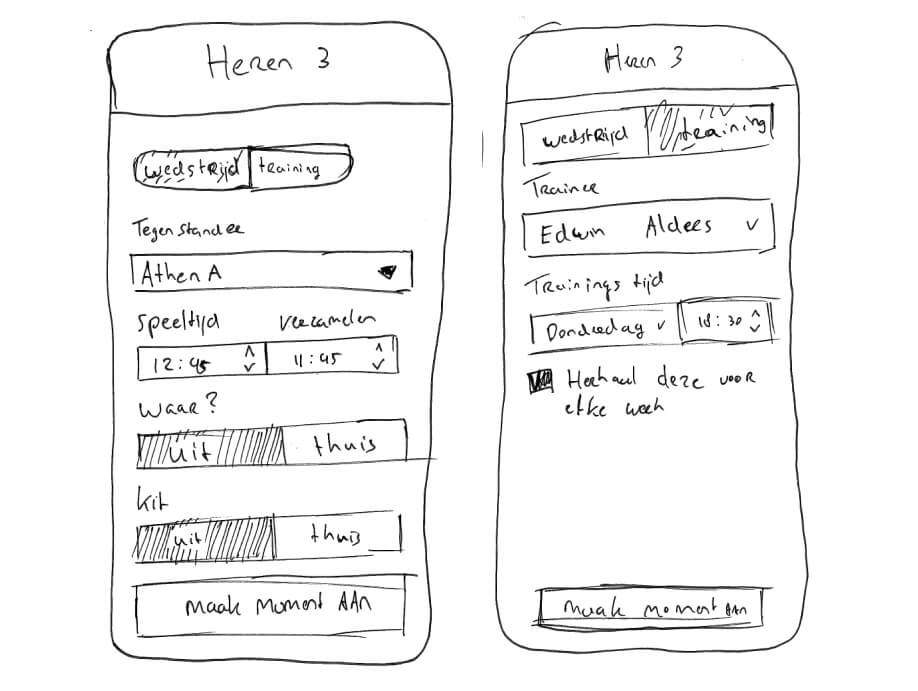 Heren 3
wedstRijd training
Tegenstander
Athen A
Speeltijd verzamelen
12:45 11:45
Waar?
uit thuis
Kit
uit thuis
Maak Moment AAn
Heren 3
wedstRijd training
Trainer
Edwin Alders
Trainings tijd
Donderdag 18:30
Herhaal deze voor
elke week
Maak moment AAn